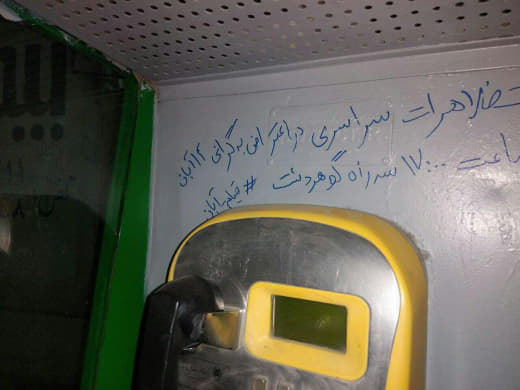 تظاهرات سراسری در اعتراض به گرانی آبان
ساعت ۱۷:۰۰ سه راه گوهردشت #قیام_آبان